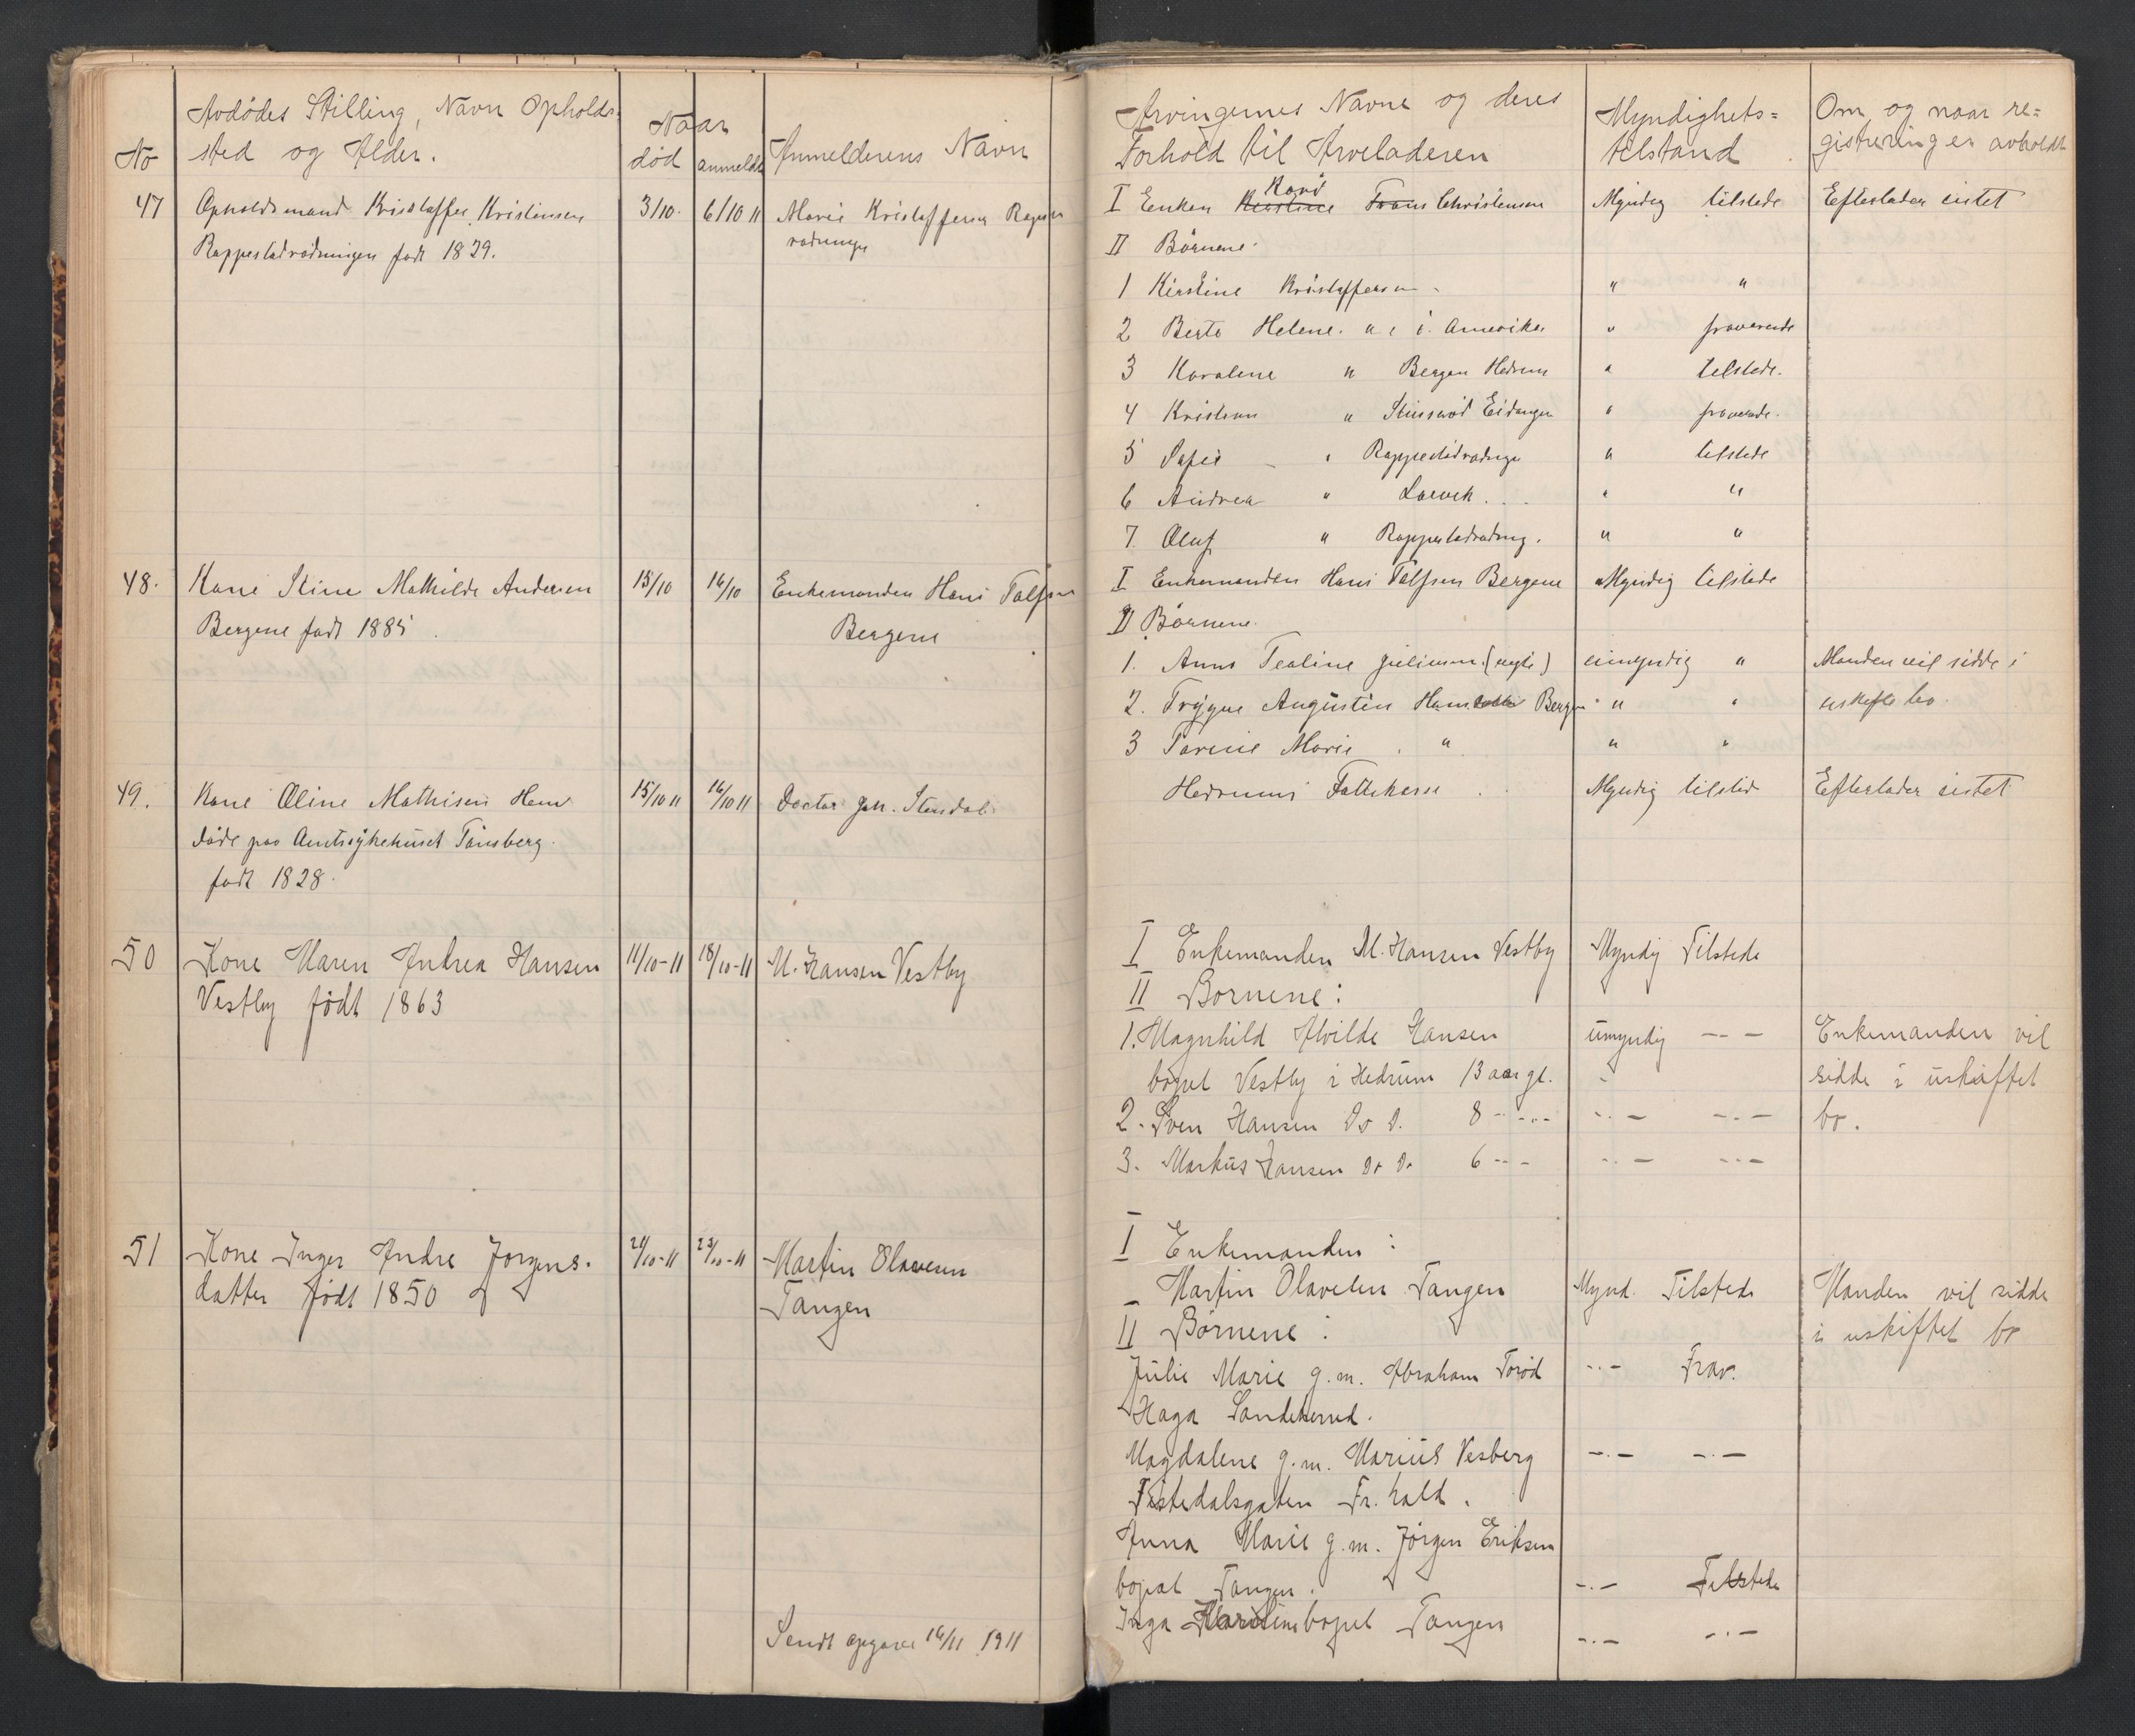 No
Avdødes Stilling, Navn Opholds-
sted og Alder.
Naar
død
anmeldt
Anmelderens Navn
47
Opholdsmand Kristoffer Kristensen
Rappestadrødningen født 1829.
3/10.
6/10 11
Marie Kristoffersen
48.
Kone Stine Mathilde Andersen
Bergene født 1885
15/10
16/10
Enkemanden Hans Tolfsen
Bergene
49.
Kone Oline Mathisen Hem
døde paa Amtsykehuset Tønsberg.
født 1828.
15/10 11
16/10 11
Doctor Joh. Stendal.
50
Kone Maren Andrea Hansen
Vestby født 1863
11/10-11
18/10-11
M. Hansen Vestby
51
Kone Inger Andre Jørgens-
datter født 1850
21/10-11
23/10-11
Martin Olavesen
Tangen
Sendt opgave 16/11 1911
Arvingernes Navne og deres
Forhold til Arveladeren
Myndighets=
tilstand
Om og naar re=
gistrering er avholdt
Kari
I Enken Kirstine Frans Christensen Myndig tilstede Efterlader intet
II Børnene.
1 Kirstine Kristoffersen " "
2 Berte Helene. " i Amerika " fraværende
3 Karoline " Bergen Hedrum " tilstede.
4 Kristian " Eidanger " fraværende.
5 Sofie " Rappestadrødningen " tilstede
6 Andrea " Larvik . . . " "
7. Oluf " Rappestadrødning. " "
I Enkemanden Hans Tolfsen Bergene Myndig tilstede
II Børnene.
1. Anna Tealine Juliussen (uegte) umyndig " Manden vil sidde i
2. Trygve Augustin Hans Bergen " " uskiftet bo.
3 Torine Marie " " "
Hedrums Fattikasse . . Myndig tilsted Efterlader intet
I Enkemanden M. Hansen Vestby Myndig Tilstede
II Børnene:
1. Magnhild Alvilde Hansen umyndig -- — Enkemanden vil
bopel Vestby i Hedrum 13 aar gl. sidde i uskiftet
2. Sven Hansen Do D. 8 -..- -.- -.- bo.
3. Markus Hansen Do Do 6 -- - -.- -.-
I Enkemanden:
Martin Olavesen Tangen Mynd. Tilstede Manden vil sidde
II Børnene: i uskiftet bo
Julie Marie g.m. Abraham Torød -.- Frav.
Haga Sandeherred.
Magdalene g.m. Marius Vesberg -.- -.-
Tistedalsgaten Fr.hald.
Anna Marie g.m. Jørgen Eriksen
bopæl Tangen. -.- Tilstede
Inga bopel Tangen -.- -.-